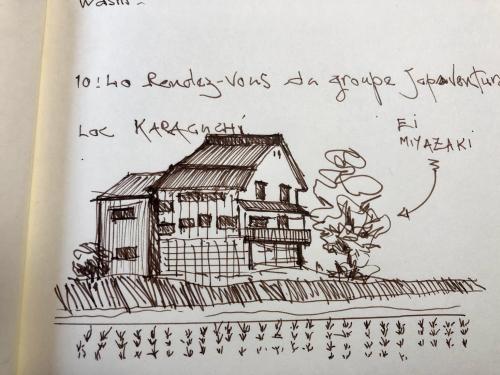 Washi.
10:40 Rendez-vous du groupe Japaventura
Lac KARAGUCHI
EI
MIYAZAKI